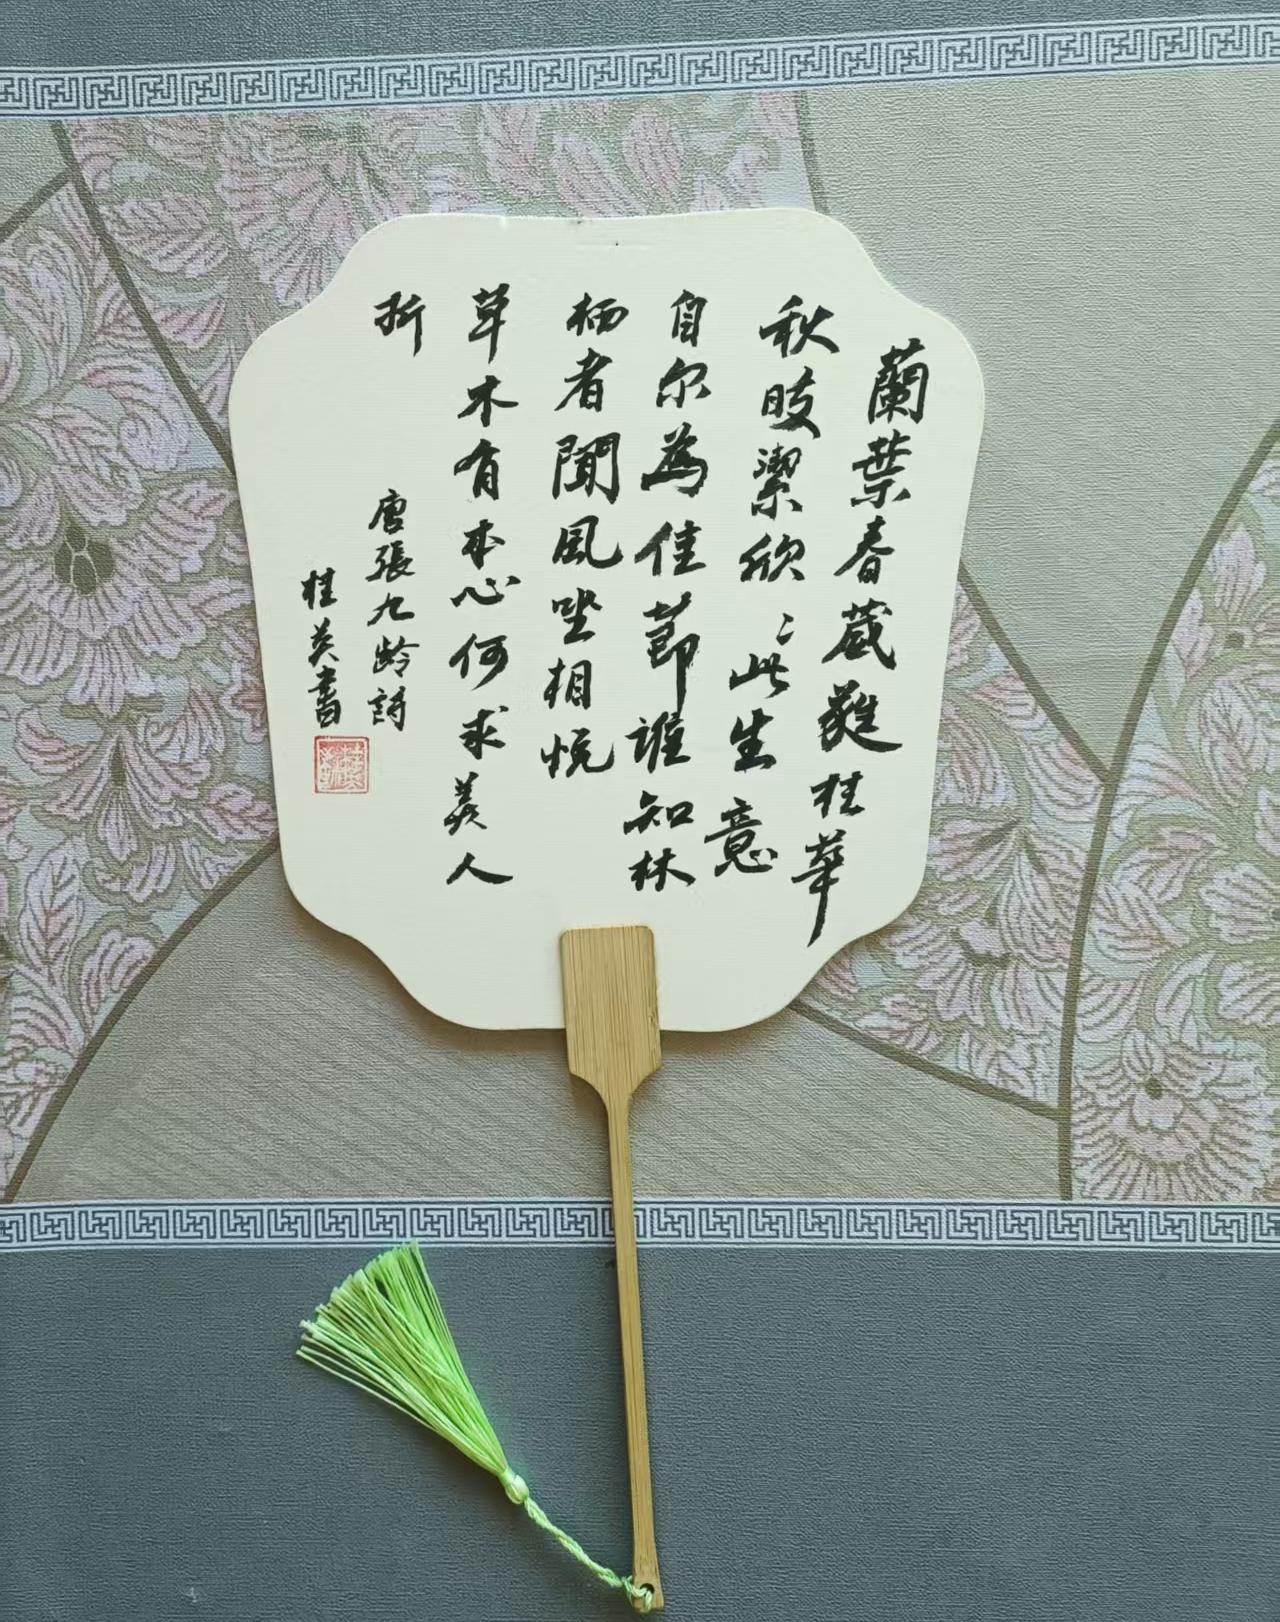 蘭葉春葳蕤桂華
秋皎潔欣〻此生意
自尔為佳莭誰知林
栖者聞風坐相悦
草木有本心何求美人
折
唐張九齡詩
桂英書